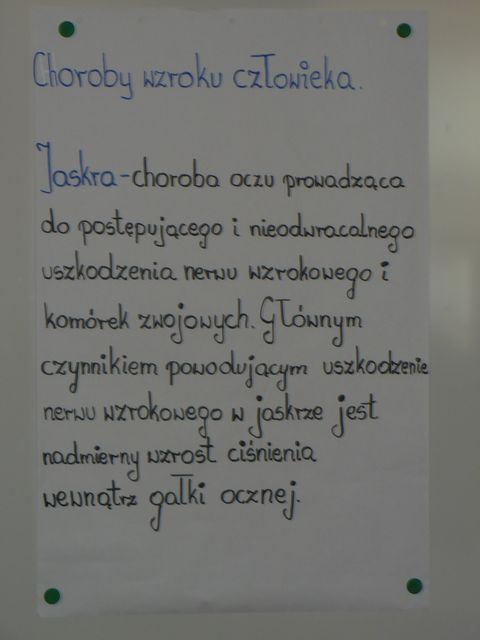 Choroby wzroku człowieka.
Jaskra-choroba oczu prowadząca
do postępującego i nieodwracalnego
uszkodzenia nerwu wzrokowego i
komórek zwojowych. Głównym
czynnikiem powodującym uszkodzenie
nerwu wzrokowego w jaskrze jest
nadmierny wzrost ciśnienia
wewnątrz gałki ocznej.